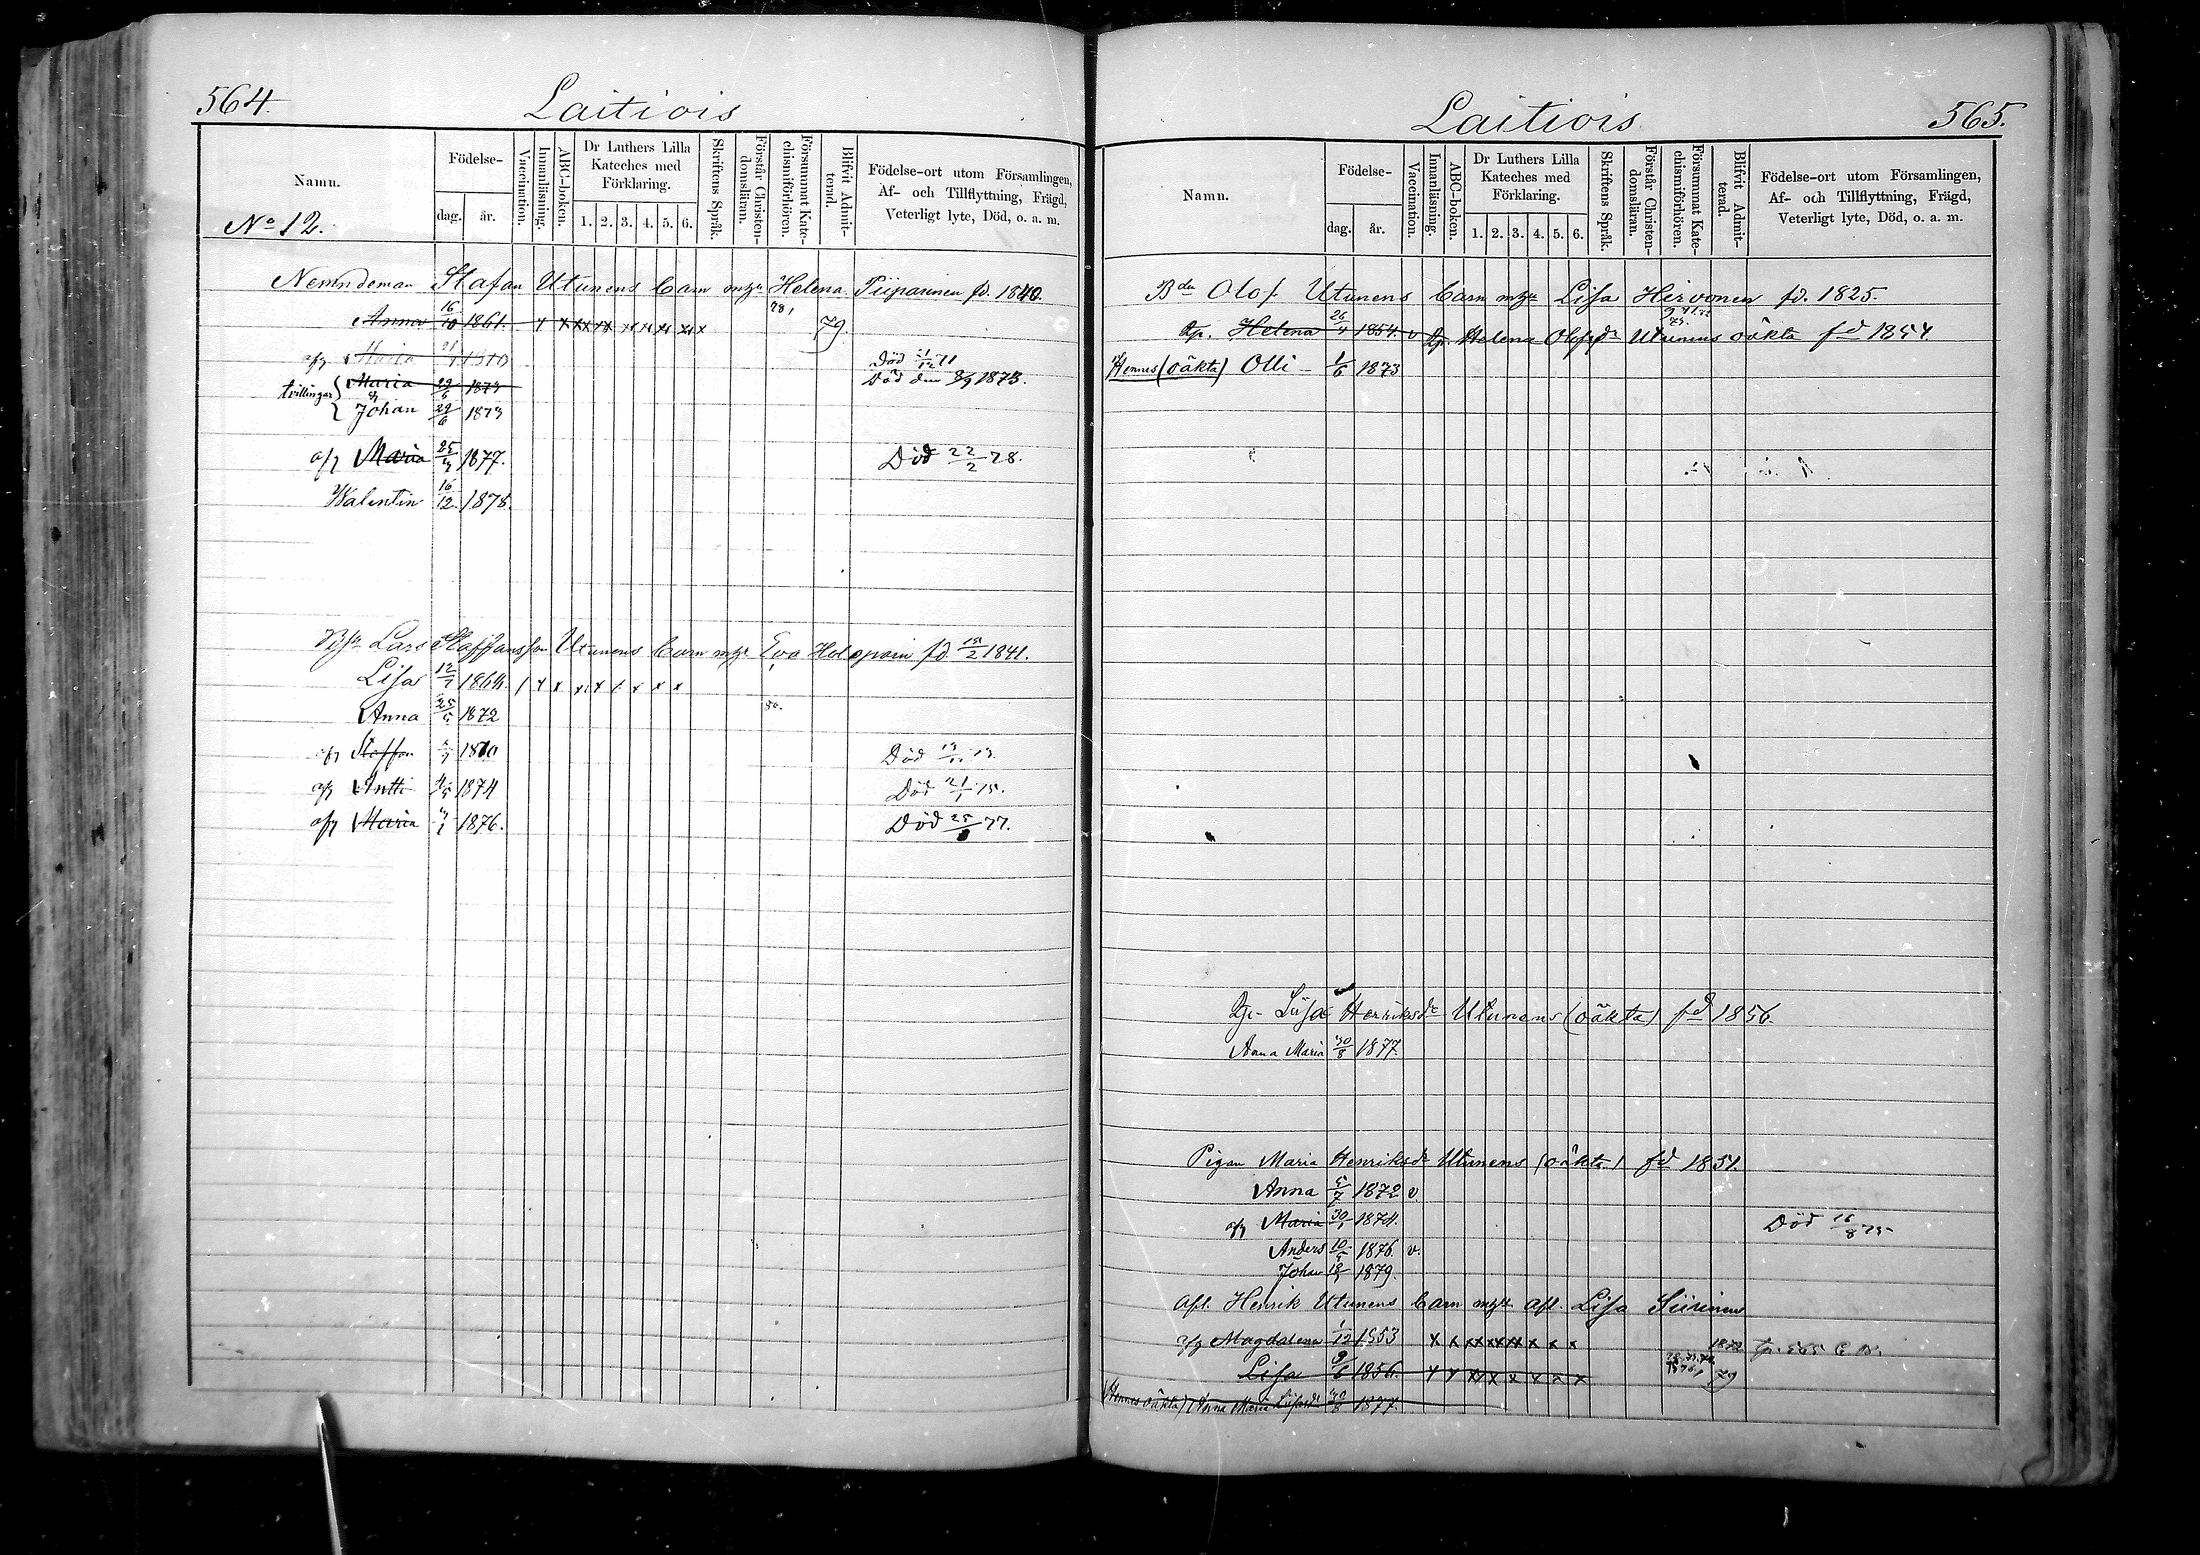 564.
Laitiois
Namn.
Födelse-
dag. år.
Vaccination.
Innanläsning.
ABC-boken.
Dr Luthers Lilla Kateches med Förklaring.
1. 2. 3. 4. 5. 6.
Skriftens Språk.
Förstår Christendomsläran.
Försummat Katechismiförhören.
Blifvit Admitterad.
Födelse-ort utom Församlingen, Af- och Tillflyttning, Frägd, Veterligt lyte, Död, o. a. m.
No 12.
Nemndeman Stafan Utunens barn m Helena Piipuinen fd. 1840.
Anna 16/10 1861. x x xx xx x x x x x 79
Maria Död 71
tvillingar Maria 22/6 1873 Död den 8/9 1873.
Johan 22/6 1873
Maria 25/4 1877. Död 22/2 78.
Walentin 16/12 1878.
Lars Staffansson Utunens barn m Eva Holopain fd 2 1841.
Lisa 12/7 1864. x x x x x x x
Anna 25/5 1872
Staffan 1870 Död
Antti 4/5 1874 Död 21/1 75.
Maria 1876. Död 25 77.
565.
Laitiois
Namn.
Födelse-
dag. år.
Vaccination.
Innanläsning.
ABC-boken.
Dr Luthers Lilla Kateches med Förklaring.
1. 2. 3. 4. 5. 6.
Skriftens Språk.
Förstår Christendomsläran.
Försummat Katechismiförhören.
Blifvit Admitterad.
Födelse-ort utom Församlingen, Af- och Tillflyttning, Frägd, Veterligt lyte, Död, o. a. m.
Bdn Olof Utunens barn m Lisa Hirvonen fd. 1825.
Helena 26/4 1854. v Helena Olofsdr Utunens oäkta fd 1854.
Hennes (oäkta) Olli - 1/6 1873
Liisa Henriksdr Utunens (oäkta) fd 1856.
Anna Maria 30/8 1877.
Pigan Maria Henriksdr Utunens (oäkta) fd 1851.
Anna 5/7 1872 v.
Maria 30/1 1874. Död 16/8 75
Anders 10 1876. v.
Johan 18 1879.
Afl. Henrik Utunens barn m afl. Lisa Siirinens
Magdalena 1/12 1853 x x xx xx xx x x x
Lisa 9/6 1856. x x xx x x x x x 79
(Hennes oäkta) Anna Maria Liisasdr 30/8 1877.